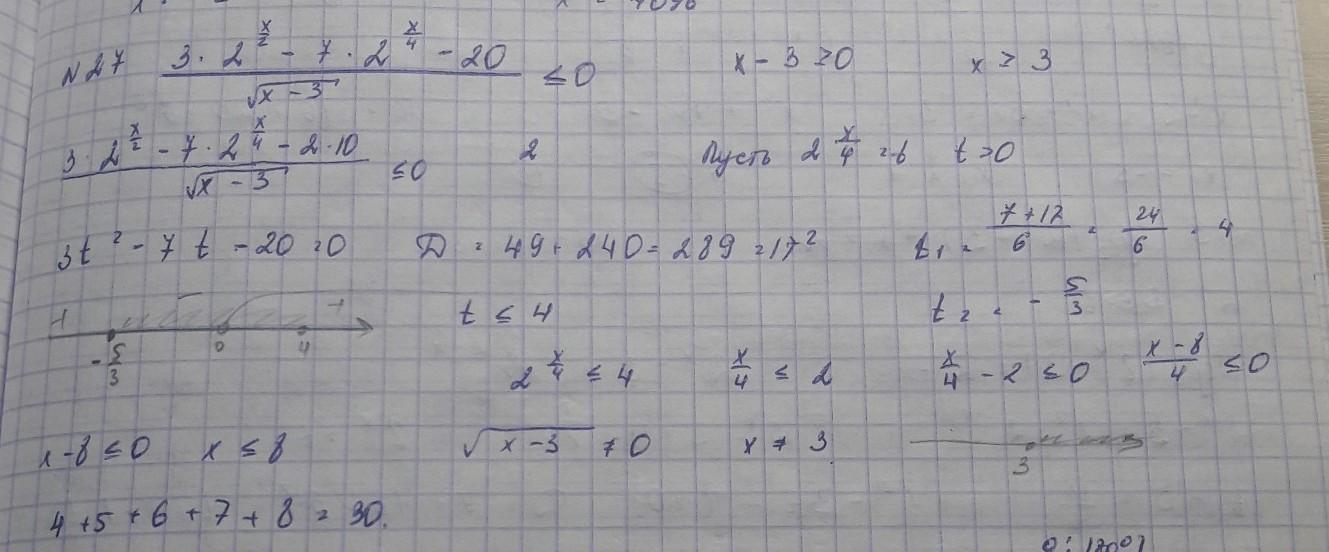 N27 (3 · 2^(x/2) − 7 · 2^(x/4) − 20)/√(x − 3) ≤ 0 x − 3 ≥ 0 x ≥ 3
(3 · 2^(x/2) − 7 · 2^(x/4) − 2 · 10)/√(x − 3) ≤ 0 2 Пусть 2^(x/4) = t t > 0
3t² − 7t − 20 = 0 D = 49 + 240 = 289 = 17² t₁ = (7 + 12)/6 = 24/6 = 4
+ − + t ≤ 4 t₂ = −5/3
−5/3 0 4 2^(x/4) ≤ 4 x/4 ≤ 2 x/4 − 2 ≤ 0 (x − 8)/4 ≤ 0
x − 8 ≤ 0 x ≤ 8 √(x − 3) ≠ 0 x ≠ 3 3
4 + 5 + 6 + 7 + 8 = 30.